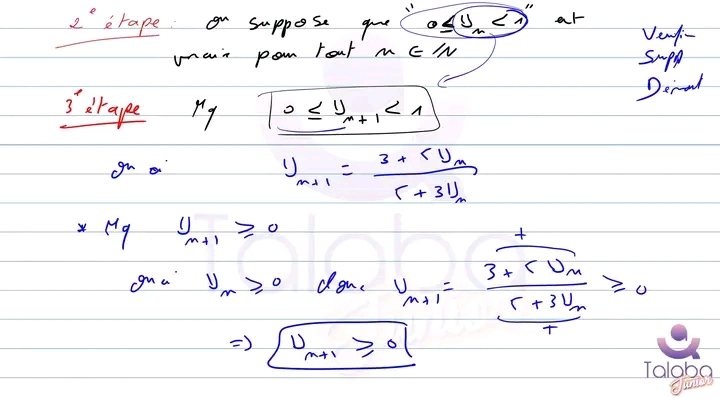 2e étape : on suppose que " 0 ≤ Un < 1 " est
vraie pour tout n ∈ IN
Verifi
Supp
Démont
3e étape Mq 0 ≤ Un+1 < 1
on a Un+1 = (3 + 5Un) / (5 + 3Un)
* Mq Un+1 ≥ 0
on a Un ≥ 0 donc Un+1 = (3 + 5Un) / (5 + 3Un) ≥ 0
+
+
=> Un+1 ≥ 0
Talaba
Junior
Talaba
Junior